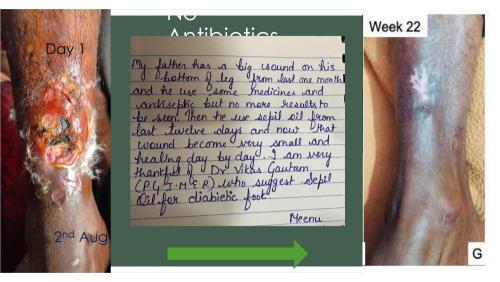 No
Antibiotics
Day 1
2nd Aug
My father has a big wound on his
bottom of leg from last one month
and he use some medicines and
antiseptic but no more results to
be seen. Then he use sepil oil from
last twelve days and now that
wound become very small and
healing day by day. I am very
thankful of Dr Vikas Gautam
(P.G.I.M.E.R) who suggest Sepil
Oil for diabetic foot.
Meenu
Week 22
G